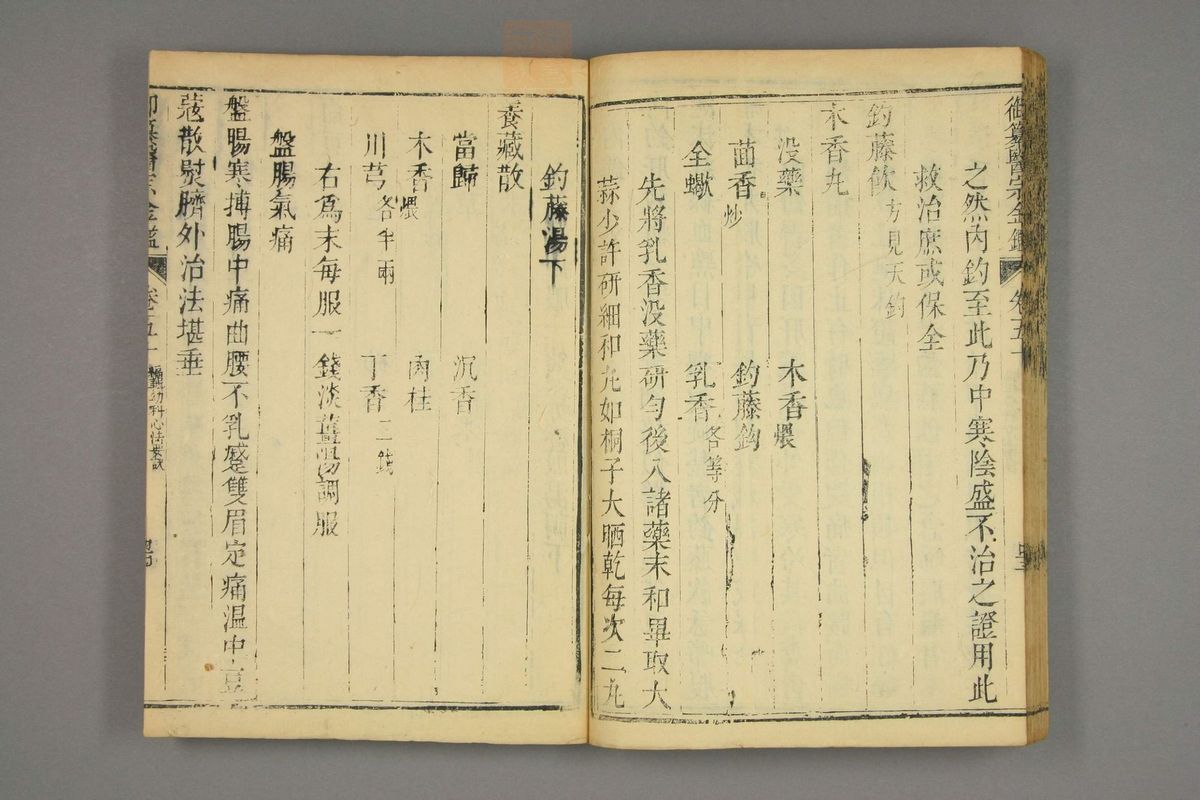 御纂醫宗金鑑
卷五十
之然內釣至此乃中寒陰盛不治之證用此
救治庶或保全
釣藤飲 方見天釣
木香丸
沒藥 木香煨
茴香炒 釣藤鈎
全蠍 乳香各等分
先將乳香沒藥研勻後入諸藥末和畢取大
蒜少許研細和丸如桐子大晒乾每次二丸
釣藤湯下
養藏散
當歸 沉香
木香煨 肉桂
川芎各半兩 丁香二錢
右為末每服一錢淡薑湯調服
盤腸氣痛
盤腸寒搏腸中痛曲腰不乳蹙雙眉定痛溫中豆
蔻散熨臍外治法堪垂
御纂醫宗金鑑
卷五十
編輯幼科心法要訣